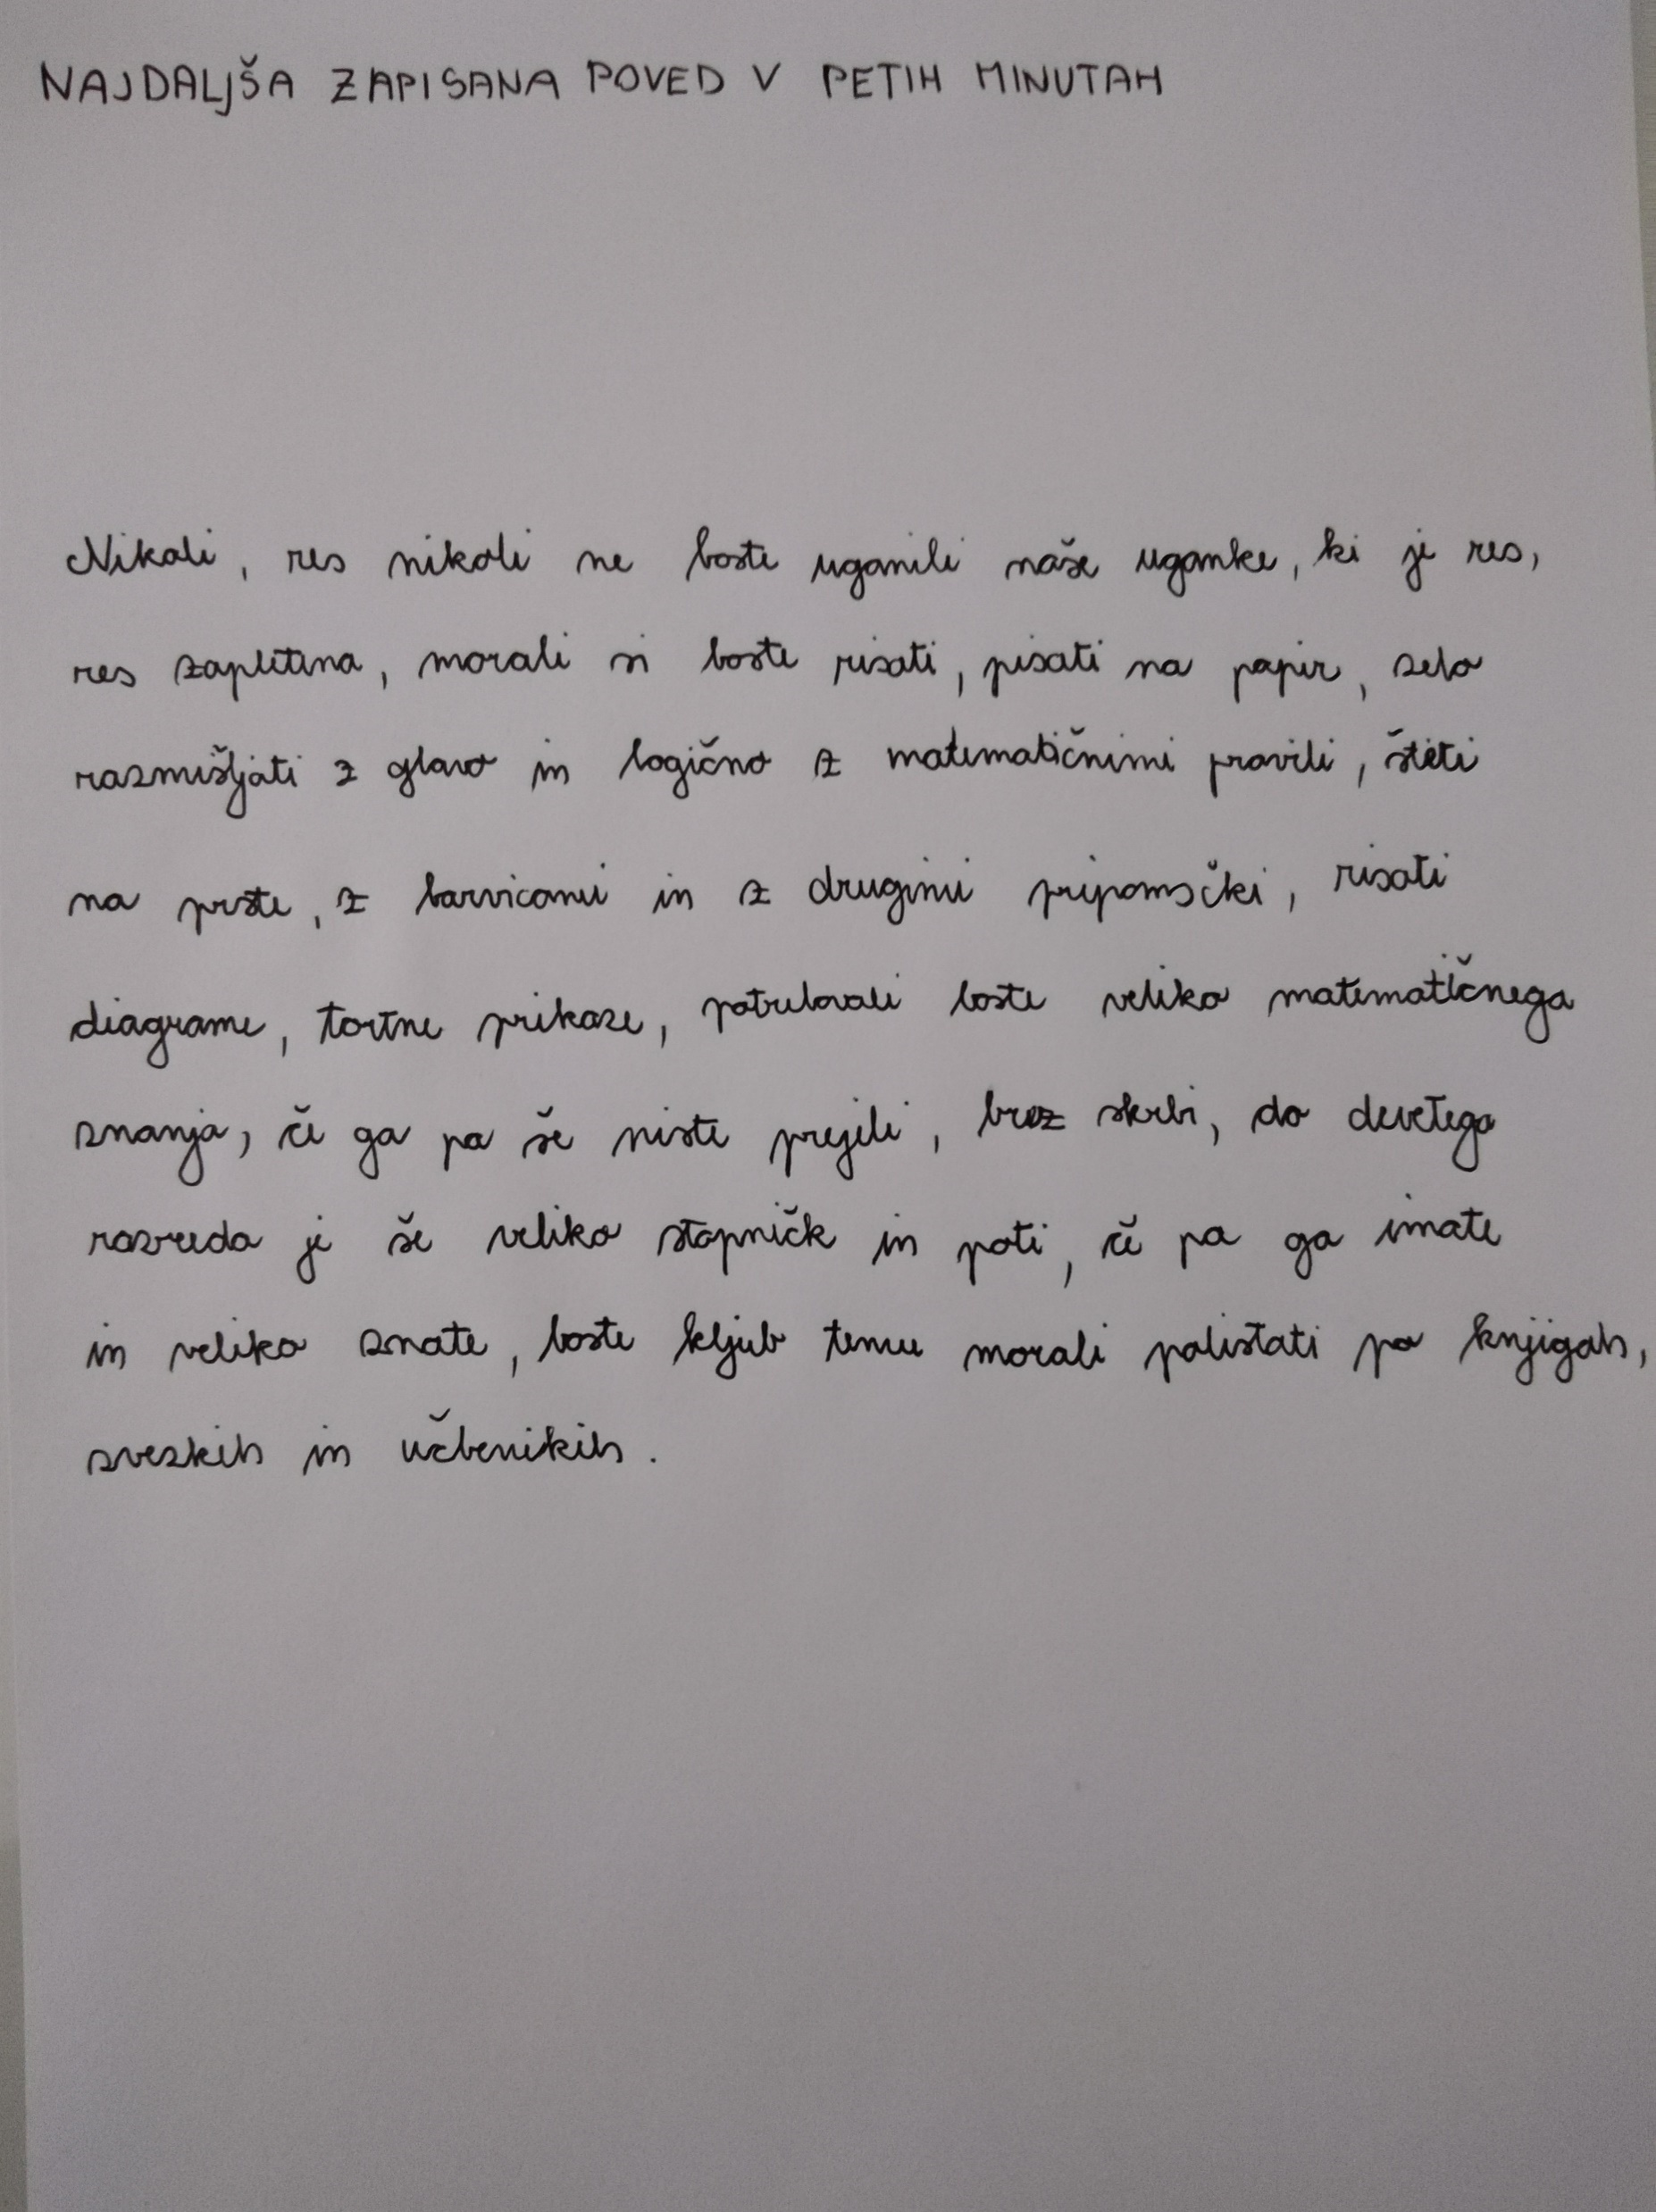 NAJDALJŠA ZAPISANA POVED V PETIH MINUTAH
Nikoli, res nikoli ne boste uganili naše uganke, ki je res,
res zapletena, morali si boste risati, pisati na papir, zelo
razmišljati z glavo in logično z matematičnimi pravili, šteti
na prste, z barvicami in z drugimi pripomočki, risati
diagrame, tortne prikaze, potrebovali boste veliko matematičnega
znanja, če ga pa še niste prejeli, brez skrbi, do devetega
razreda je še veliko stopničk in poti, če pa ga imate
in veliko znate, boste kljub temu morali polistati po knjigah,
zvezkih in učbenikih.